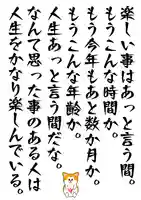 楽しい事はあっと言う間。
もうこんな時間か。
もう今年もあと数か月か。
もうこんな年齢か。
人生あっと言う間だな。
なんて思った事のある人は
人生をかなり楽しんでいる。